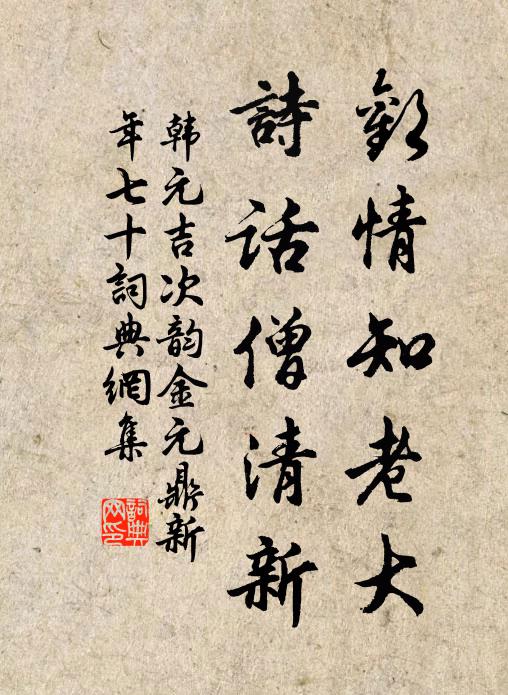 歡情知老大
詩話僧清新
韩元吉次韵金元鼎新
年七十詞典網集
詞典網印